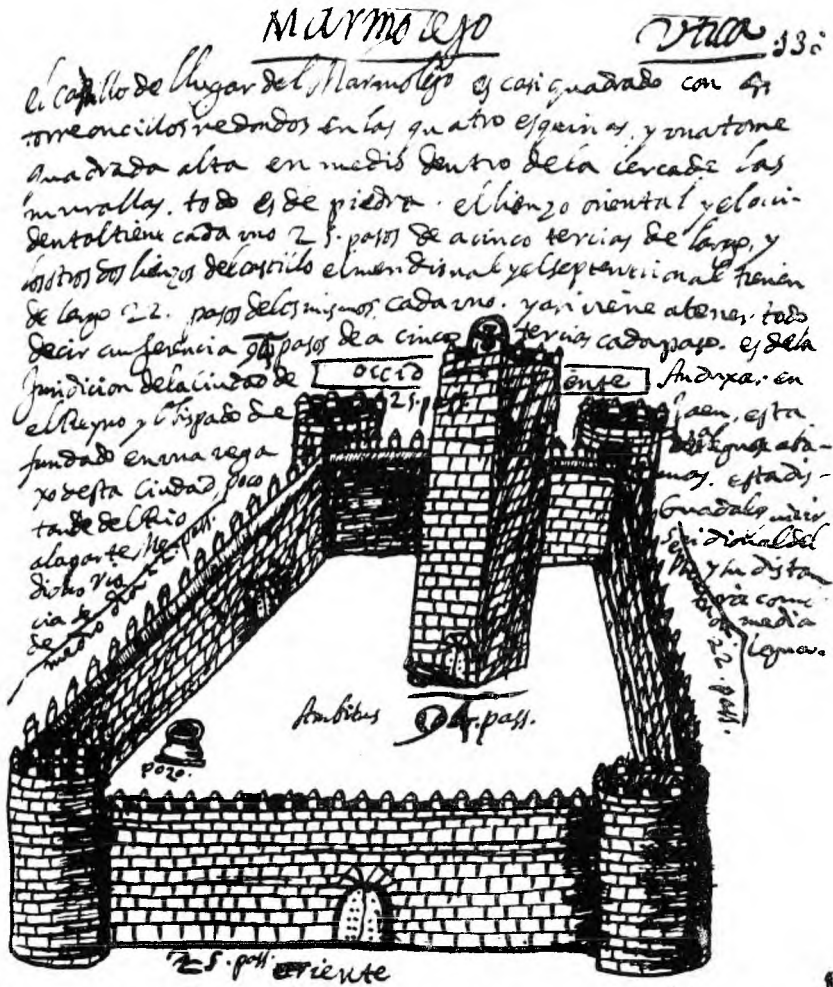 Marmolejo
Utica
el castillo de llugar del Marmolejo es casi quadrado con
torreoncillos redondos en las quatro esquinas, y una torre
quadrada alta en medio dentro de la cerca de las
murallas. todo es de piedra. el lienzo oriental y el occi-
dental tiene cada uno 25. pasos de a cinco tercias de largo, y
los otros dos lienzos del castillo el meridional y el septentrional tienen
de largo 22. pasos de los mismos cada uno. y asi viene a tener todo
de circunferencia 94 pasos de a cinco tercias cada paso. es de la
Juridicion de la Ciudad de Anduxar. en
el Reyno y Obispado de Jaen, esta
fundado en una vega
xo desta Ciudad, poco
del Rio Guadalquivir
a la parte Meridional del
dicho Rio y su distan
cia de como
de media
legua.
occidente
25. pass.
medio dia 22. pass.
22. pass.
Ambitus 94. pass.
pozo.
25. pass. oriente